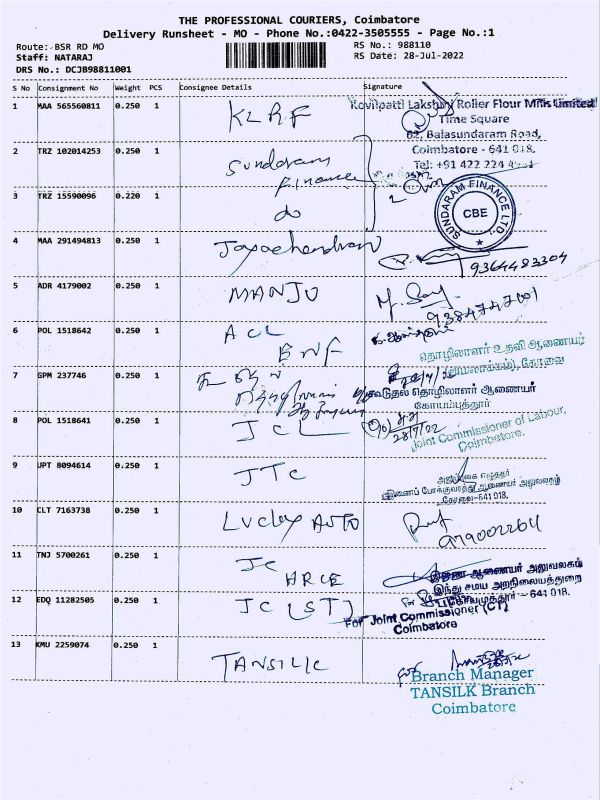 THE PROFESSIONAL COURIERS, Coimbatore
Delivery Runsheet - MO - Phone No.:0422-3505555 - Page No.:1
Route: BSR RD MO
RS No.: 988110
Staff: NATARAJ
RS Date: 28-Jul-2022
DRS No.: DCJB98811001
S No Consignment No Weight PCS Consignee Details Signature
1 MAA 565560811 0.250 1 KLRF
Kovilpatti Lakshmi Roller Flour Mills Limited
Time Square
62, Balasundaram Road,
Coimbatore - 641 018.
Tel: +91 422 224
2 TRZ 102014253 0.250 1 Sundaram
Finance
3 TRZ 15590096 0.220 1 do
SUNDARAM FINANCE LTD.
CBE
4 MAA 291494813 0.250 1 Jayachandran
9364483304
5 ADR 4179002 0.250 1 MANJU
6 POL 1518642 0.250 1 ACL
ENF
தொழிலாளர் உதவி ஆணையர்
கோவை
7 GPM 237746 0.250 1
கூடுதல் தொழிலாளர் ஆணையர்
கோயம்புத்தூர்
8 POL 1518641 0.250 1 JCL
28/7/22
Joint Commissioner of Labour,
Coimbatore.
9 UPT 8094614 0.250 1 JTC
இணைப் போக்குவரத்து ஆணையர் அலுவலகம்
கோவை-641 018.
10 CLT 7163738 0.250 1 Lucky AUTO
9790022611
11 TNJ 5700261 0.250 1 JC
HRCE
இணை ஆணையர் அலுவலகம்
இந்து சமய அறநிலையத்துறை
641 018.
12 EDQ 11282505 0.250 1 JC (ST)
For Joint Commissioner (CT)
Coimbatore
13 KMU 2259074 0.250 1 TANSILK
Branch Manager
TANSILK Branch
Coimbatore